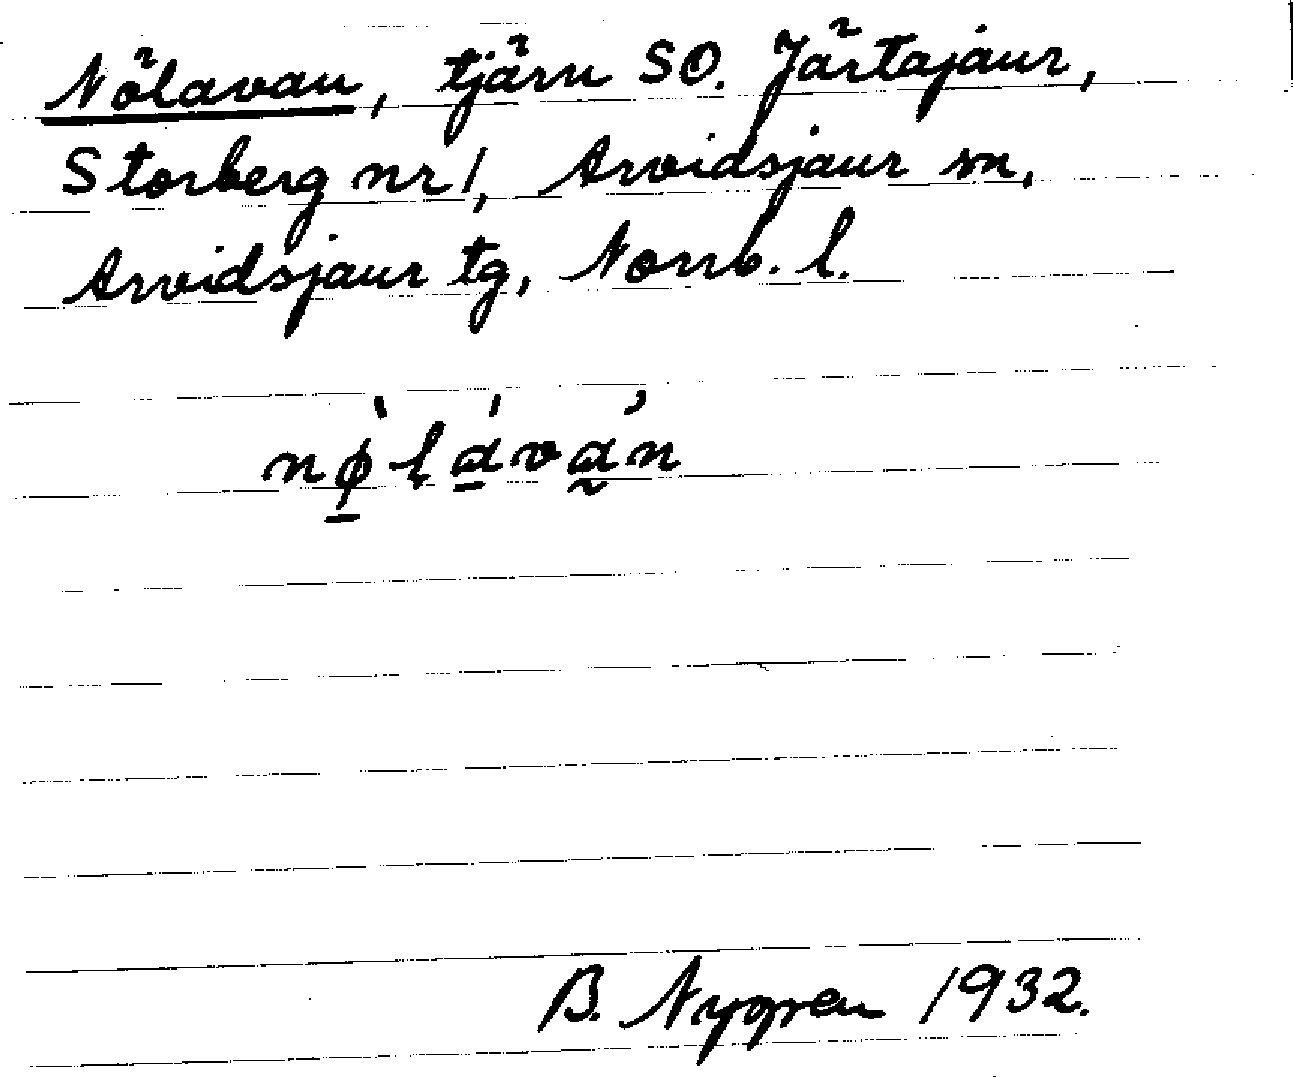 Nölavan, tjärn SO. Järtajaur,
Storberg nr 1, Arvidsjaur sn,
Arvidsjaur tg, Norrb. l.
nø̱̀lá̱vá̰n
B. Nygren 1932.